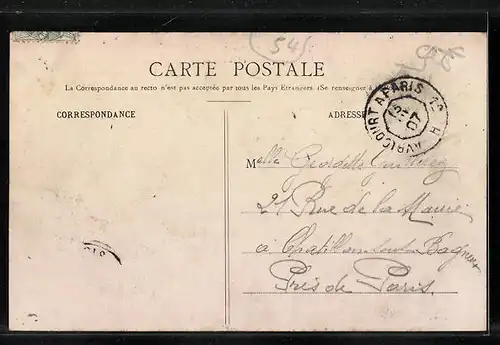 (54)
CARTE POSTALE
La Correspondance au recto n'est pas acceptée par tous les Pays Etrangers. (Se renseigner à
CORRESPONDANCE
ADRESSE
AVRICOURT A PARIS
07
Melle Georgette
21 Rue de la Mairie
à Chatillon sous Bagneux
Près de Paris.